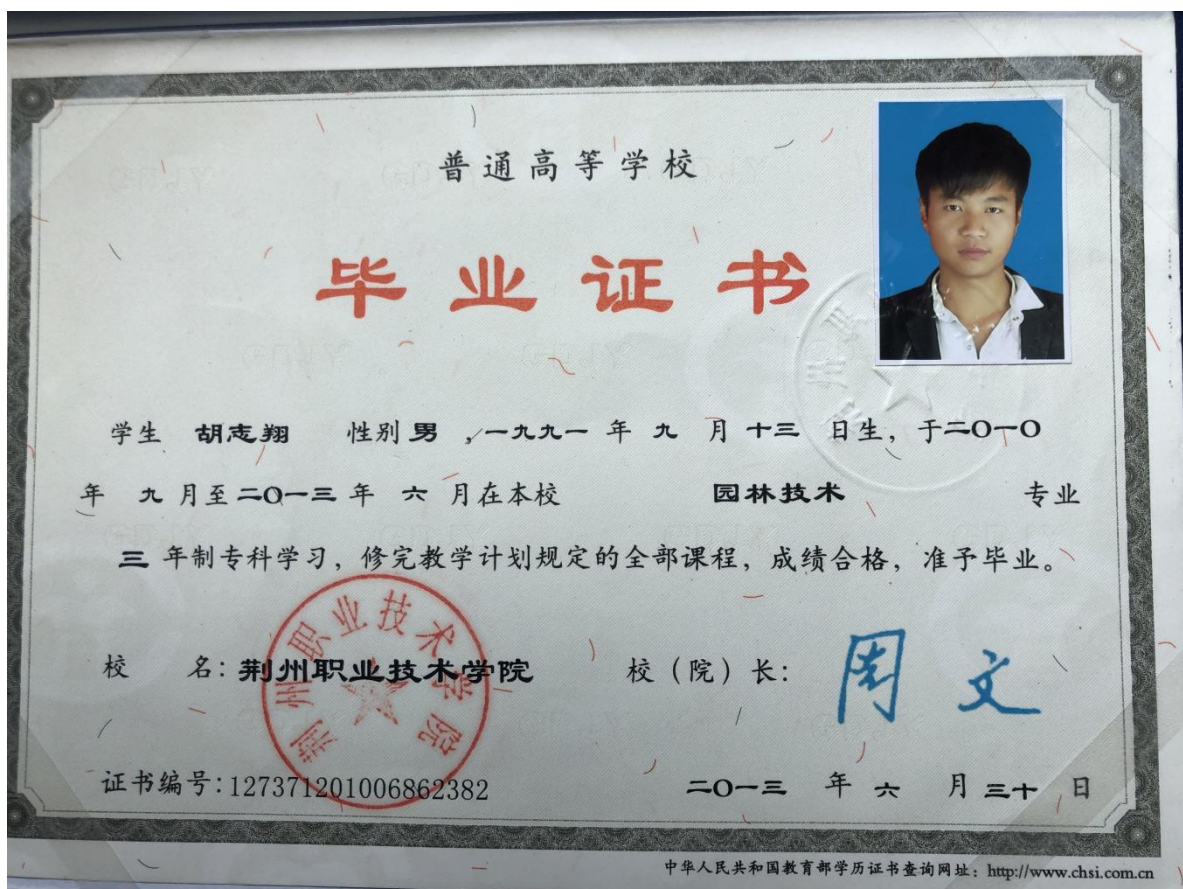 普通高等学校
毕业证书
学生 胡志翔 性别 男 ,一九九一 年 九 月 十三 日生, 于二〇一〇
年 九 月至二〇一三 年 六 月在本校 园林技术 专业
三 年制专科学习, 修完教学计划规定的全部课程, 成绩合格, 准予毕业。
荆州职业技术学院
校 名: 荆州职业技术学院 校(院)长: 周文
证书编号:127371201006862382 二〇一三 年 六 月 三十 日
中华人民共和国教育部学历证书查询网址: http://www.chsi.com.cn